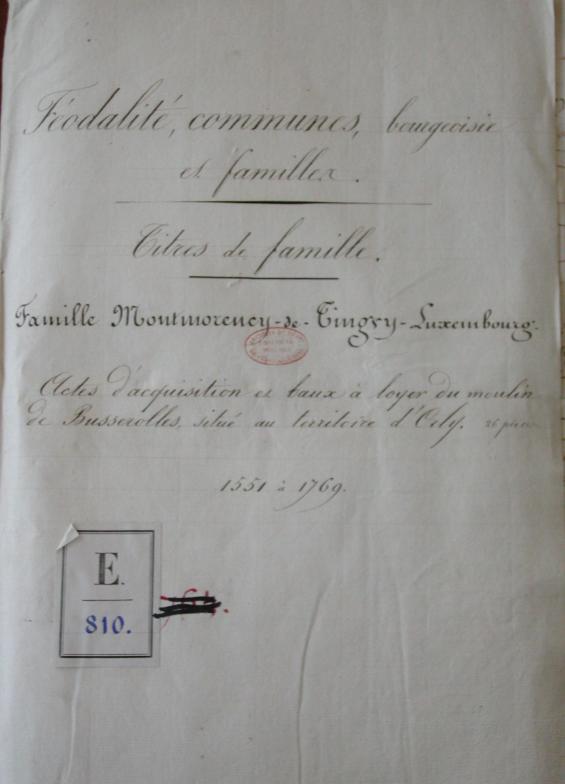 Féodalité, communes, bourgeoisie
et familles.
Titres de famille.
Famille Montmorency-de-Tingry-Luxembourg.
Actes d'acquisition et baux à loyer du moulin
de Busserolles, situé au territoire d'Orly. 26 pièces
1551 à 1769.
E.
810.